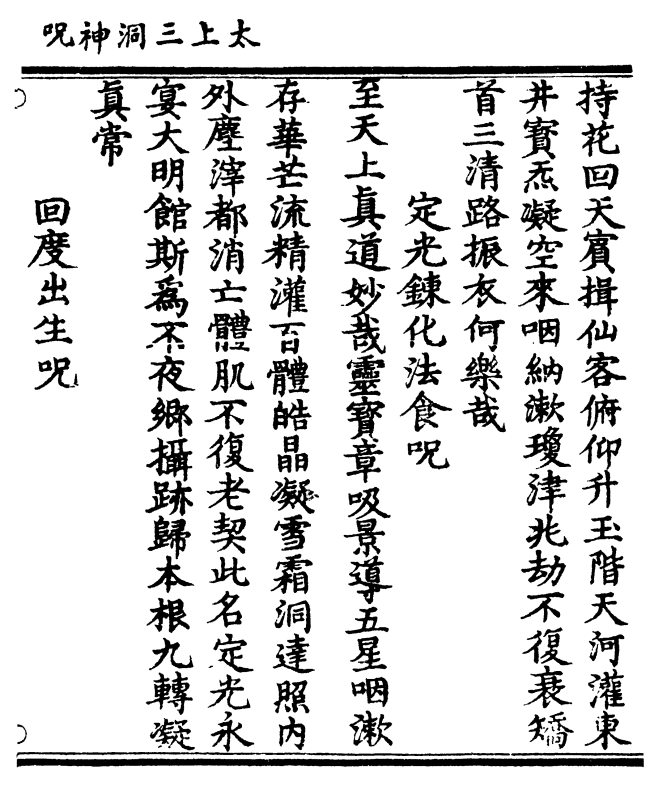 太上三洞神呪
持花回天賓揖仙客俯仰升玉階天河灌東
井寶炁凝空來咽納漱瓊津兆劫不復衰矯
首三清路振衣何樂哉
定光鍊化法食呪
至天上眞道妙哉靈寶章吸景導五星咽漱
存華芒流精灌百體皓晶凝雪霜洞達照內
外塵滓都消亡體肌不復老契此名定光永
宴大明館斯爲不夜鄉攝跡歸本根九轉凝
眞常
回度出生呪